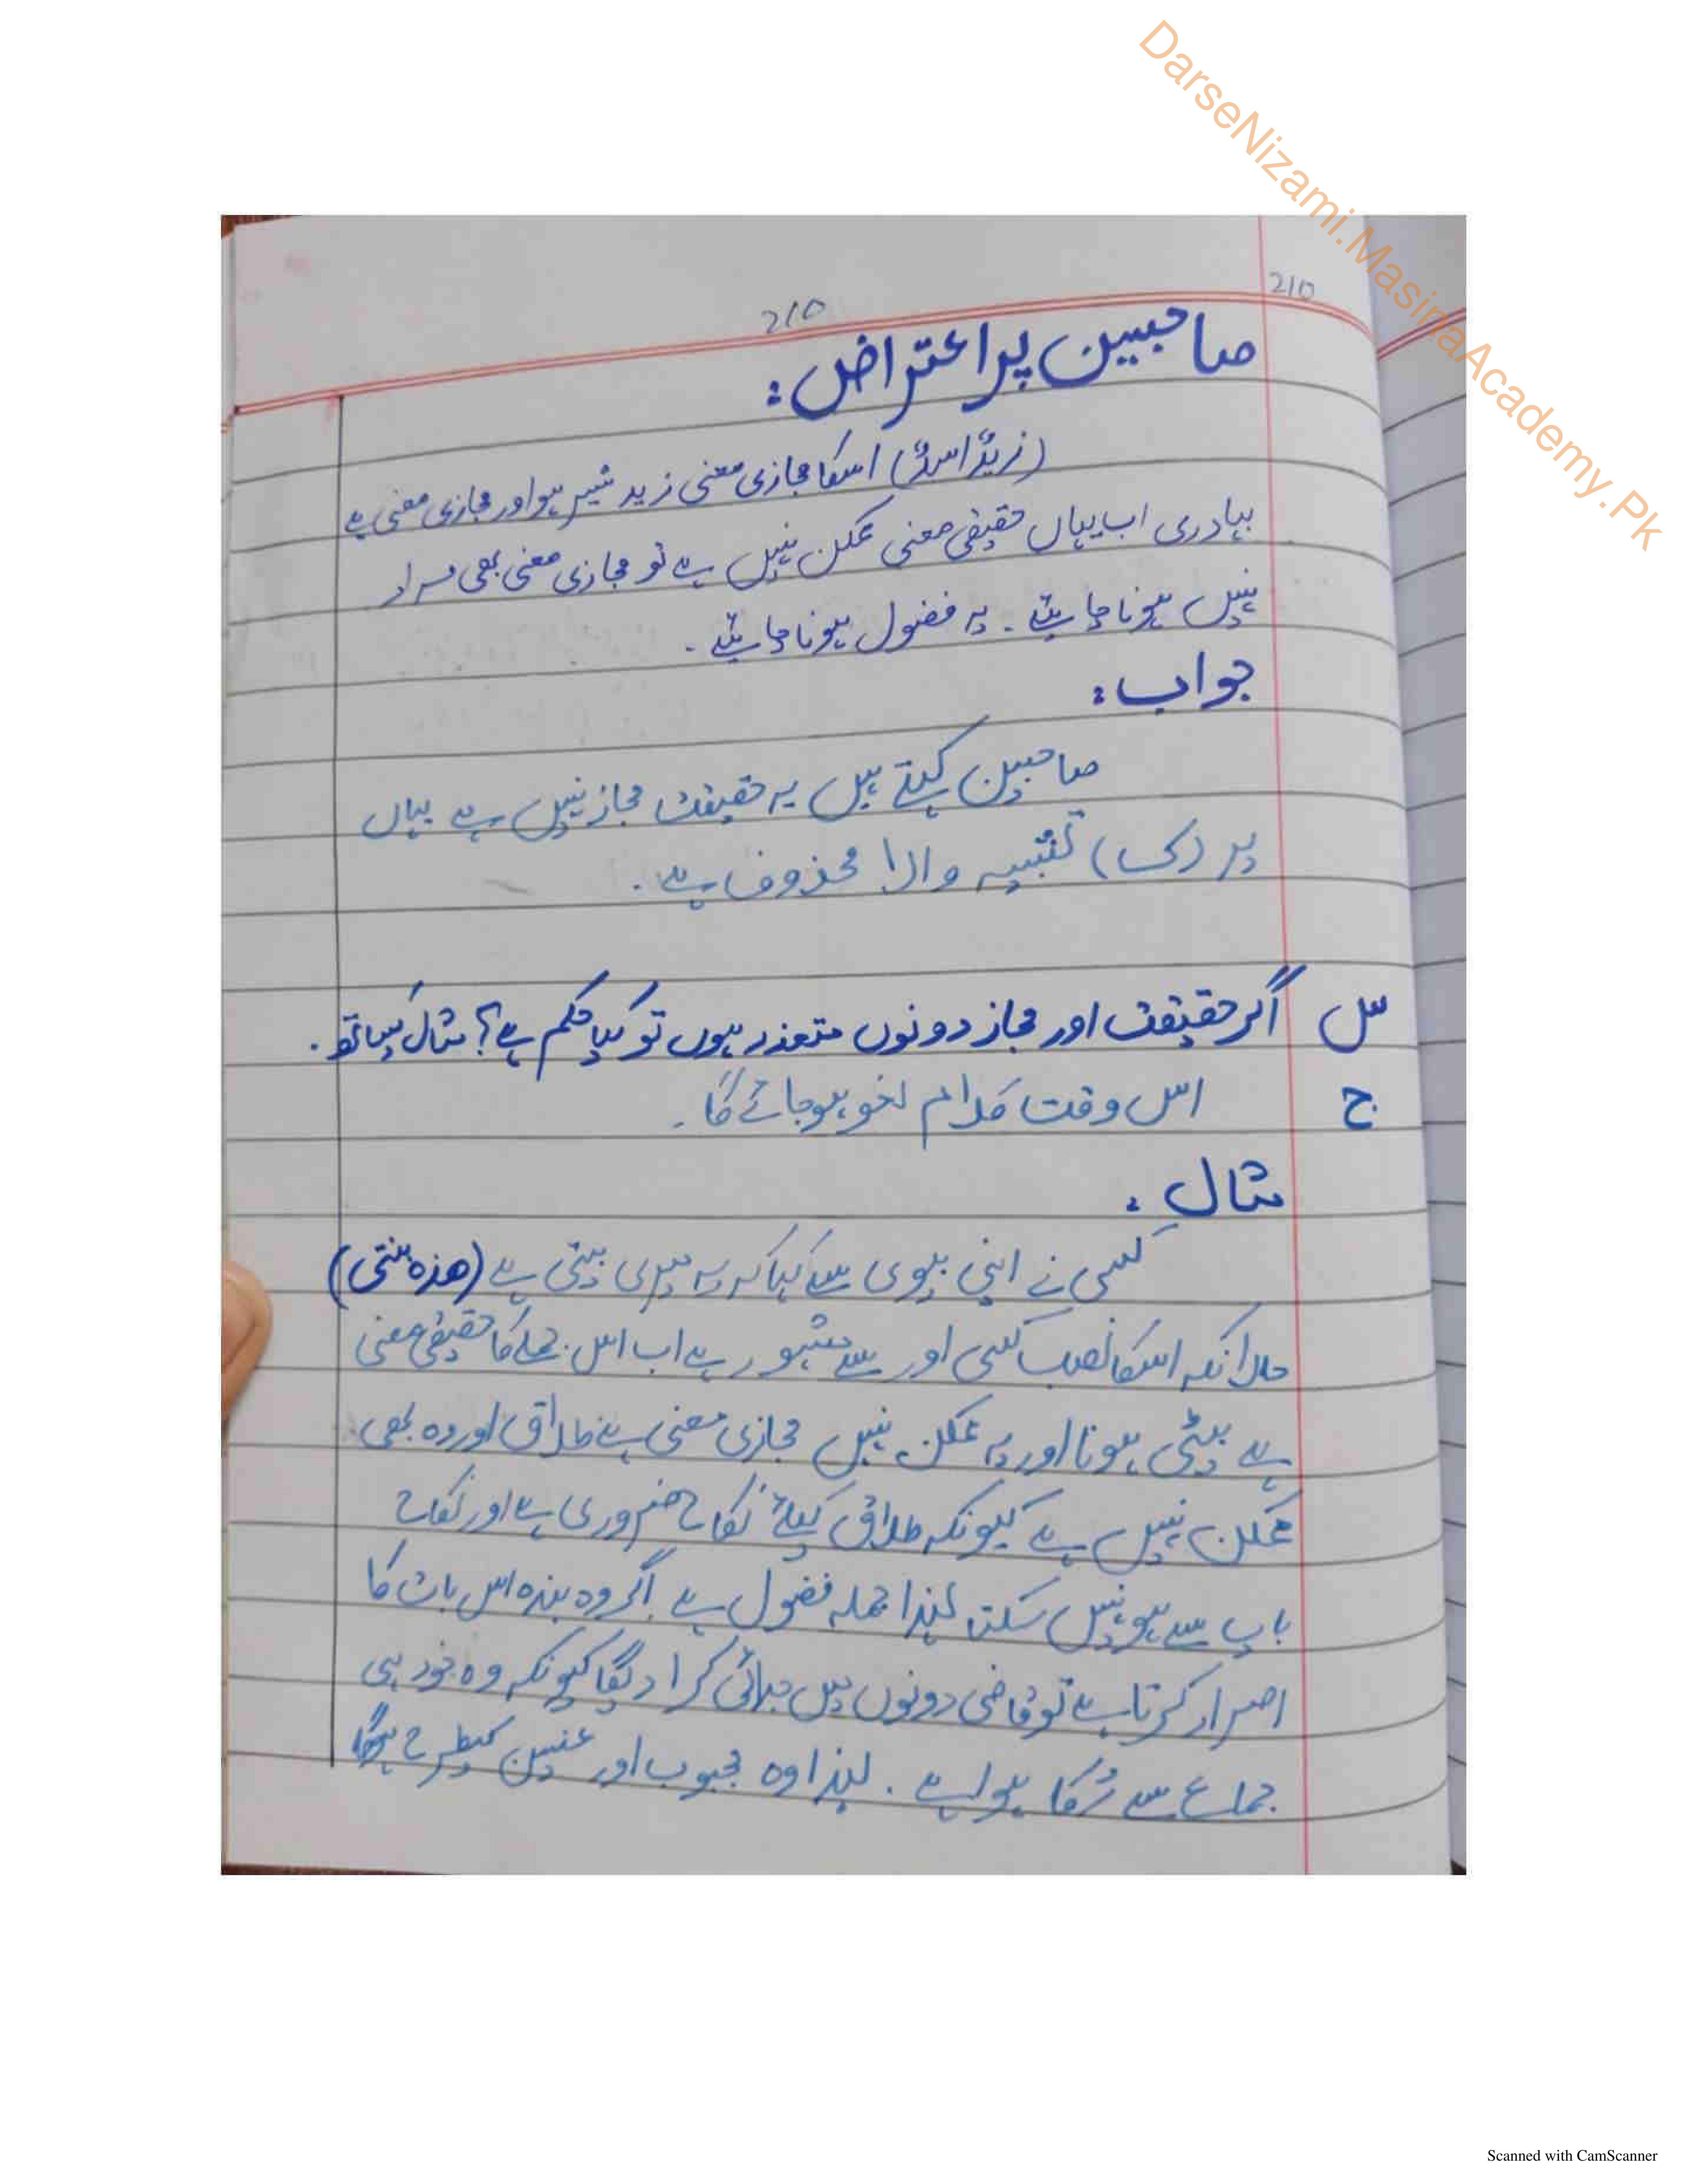 DarseNizami.MasinaAcademy.Pk
210
210
صاحبین پر اعتراض:
(زیدٌ اسدٌ) اسکا مجازی معنی زید شیر ہو اور مجازی معنی ہے
بہادری اب یہاں حقیقی معنی ممکن نہیں ہے تو مجازی معنی بھی مراد
نہیں ہونا چاہیئے ۔ یہ فضول ہونا چاہیئے ۔
جواب:
صاحبین کہتے ہیں یہ حقیقت مجاز نہیں ہے یہاں
پر (ک) تشبیہ والا محذوف ہے ۔
س اگر حقیقت اور مجاز دونوں متعذر ہوں تو کیا حکم ہے؟ مثال کیساتھ ۔
ج اس وقت کلام لغو ہو جائے گا ۔
مثال:
کسی نے اپنی بیوی سے کہا کہ یہ میری بیٹی ہے (ھذہ بنتی)
حلانکہ اسکا نصب کسی اور سے مشہور ہے اب اس جملے کا حقیقی معنی
ہے بیٹی ہونا اور یہ ممکن نہیں مجازی معنی ہے طلاق اور وہ بھی
ممکن نہیں ہے کیونکہ طلاق کیلئے نکاح ضروری ہے اور نکاح
باپ سے ہو نہیں سکتا لہذا جملہ فضول ہے اگر وہ بندہ اس بات کا
اصرار کرتا ہے تو قاضی دونوں میں جدائی کرا دیگا کیونکہ وہ خود ہی
جماع سے رُکا ہوا ہے ۔ لہذا وہ مجبوب اور عنین کیطرح ہوگا
Scanned with CamScanner